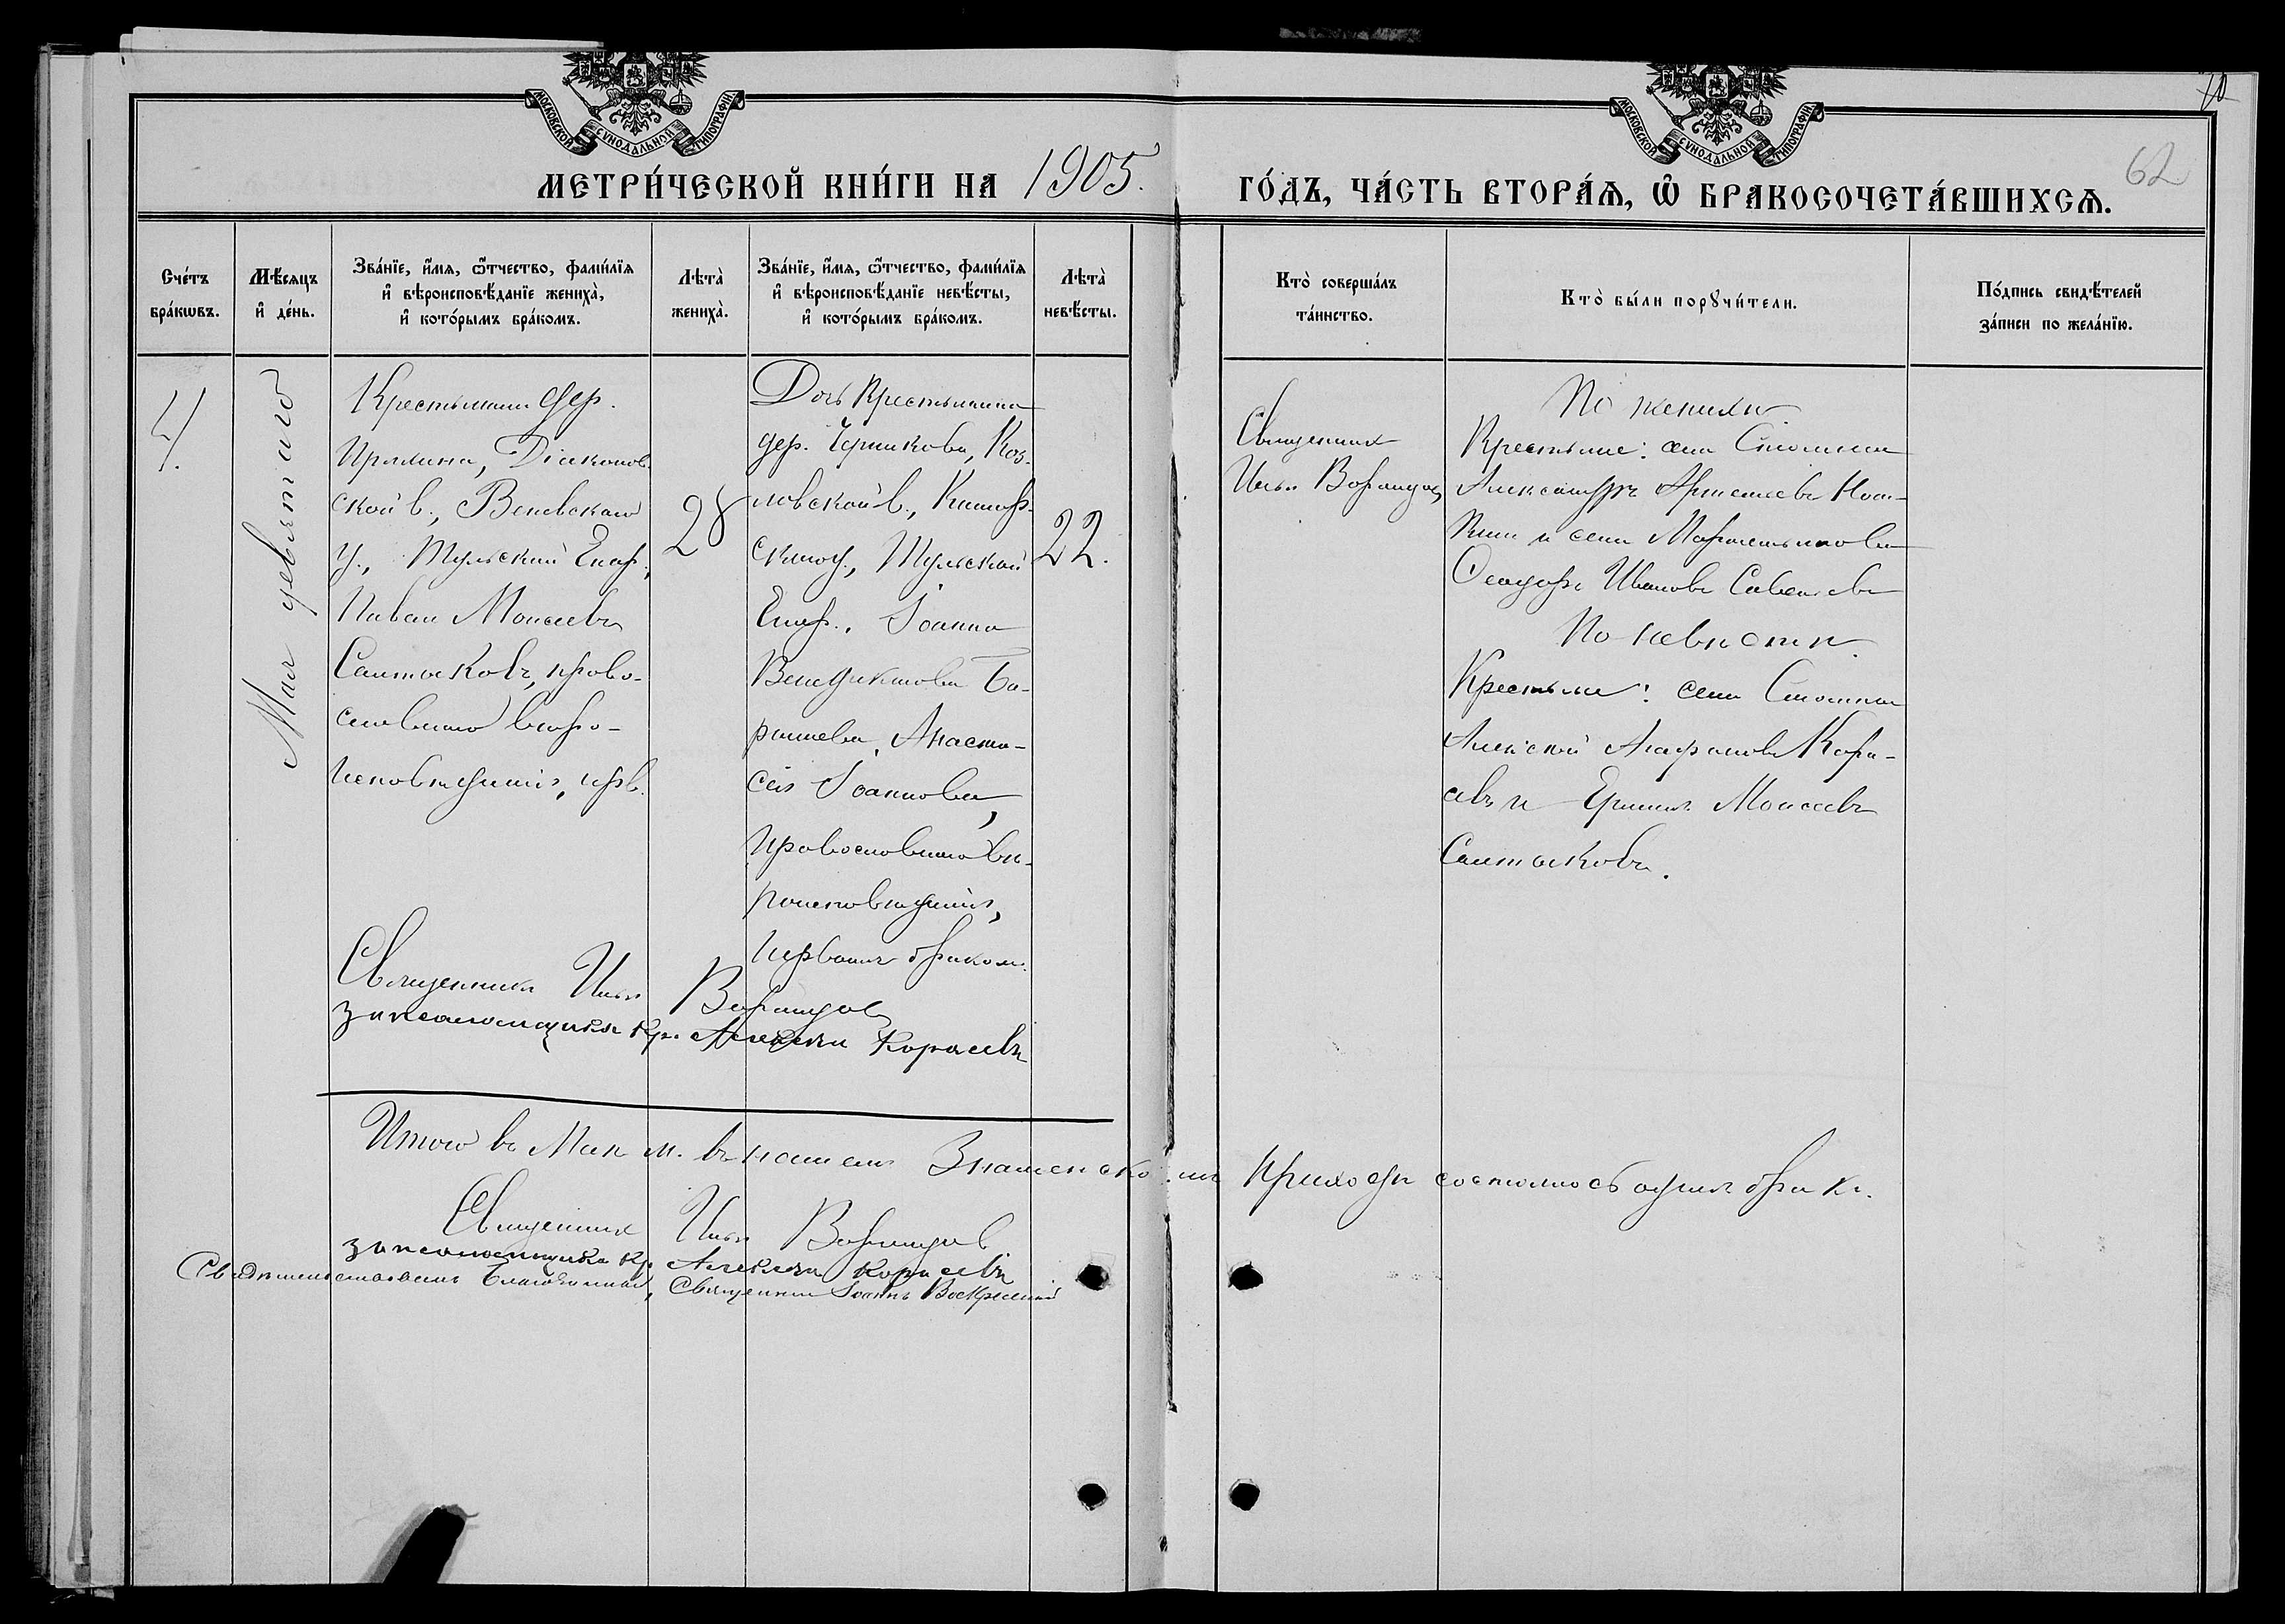 МОСКОВСКОЙ СѴНОДАЛЬНОЙ ТИПОГРАФІИ.
МОСКОВСКОЙ СѴНОДАЛЬНОЙ ТИПОГРАФІИ.
МЕТРИ́ЧЕСКОЙ КНИ́ГИ НА 1905.
ГО́ДЪ, ЧА́СТЬ ВТОРА́Ѧ, Ѡ҆ БРАКОСОЧЕТА́ВШИХСѦ.
62
Сче́тъ
бра́кѡвъ.
Мѣ́сяцъ
и҆ де́нь.
Зва́нїе, и҆́мя, ѻ҆́тчество, фами́лїя
и҆ вѣроисповѣ́данїе жениха̀,
и҆ кото́рымъ бра́комъ.
Лѣта̀
жениха̀.
Зва́нїе, и҆́мя, ѻ҆́тчество, фами́лїя
и҆ вѣроисповѣ́данїе невѣ́сты,
и҆ кото́рымъ бра́комъ.
Лѣта̀
невѣ́сты.
Кто̀ соверша́лъ
та́инство.
Кто̀ бы́ли порꙋчи́тели.
По́дпись свидѣ́телей
за́писи по жела́нїю.
4.
Мая девятаго
Крестьянинъ дер.
Пряхина, Діаконов-
ской в., Веневскаго
у., Тульской Епар.,
Иванъ Моисеевъ
Салтыковъ, право-
славнаго вѣро-
исповѣданія, прв.
28
Дочь Крестьянина
дер. Чернikова, Коз-
ловской в., Кашир-
скаго у., Тульской
Епар., Іоанна
Венедиктова Ба-
рышева, Анаста-
сія Іоаннова,
православнаго вѣ-
роисповѣданія,
первымъ бракомъ.
22.
Священникъ
Илья
Крестьяне: села
Александръ
и села
Ѳеодоръ Ивановъ Савельевъ
По женихѣ
По невѣстѣ.
Крестьяне: села
Алексій Кара-
севъ и Моисеевъ
Салтыковъ.
Священникъ Илья
псаломщика кр. Алексѣй Карасевъ
Итого въ Маѣ м. въ нашемъ Знаменскомъ приходѣ состоялось одинъ бракъ.
Священникъ Илья
псаломщика кр. Алексѣй Карасевъ
Благочинный, Священникъ Іоаннъ Воскресенскій